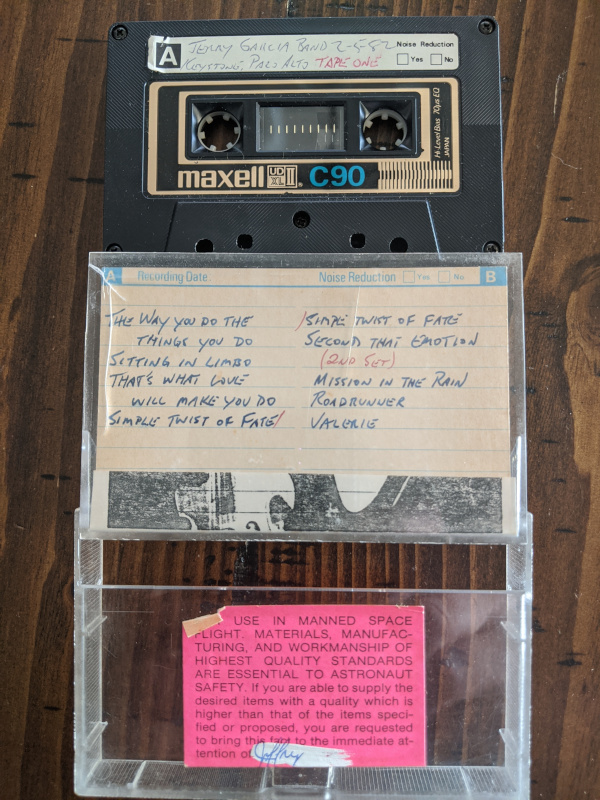 A JERRY GARCIA BAND 2-5-82 Noise Reduction
KEYSTONE, PALO ALTO TAPE ONE Yes No
maxell UD XL II C90
Hi-Level Bias 70µs EQ
JAPAN
A Recording Date Noise Reduction Yes No B
THE WAY YOU DO THE
THINGS YOU DO
SITTING IN LIMBO
THAT'S WHAT LOVE
WILL MAKE YOU DO
SIMPLE TWIST OF FATE/
/SIMPLE TWIST OF FATE
SECOND THAT EMOTION
(2ND SET)
MISSION IN THE RAIN
ROADRUNNER
VALERIE
USE IN MANNED SPACE
FLIGHT. MATERIALS, MANUFAC-
TURING, AND WORKMANSHIP OF
HIGHEST QUALITY STANDARDS
ARE ESSENTIAL TO ASTRONAUT
SAFETY. If you are able to supply the
desired items with a quality which is
higher than that of the items speci-
fied or proposed, you are requested
to bring this fact to the immediate at-
tention of Jeffrey